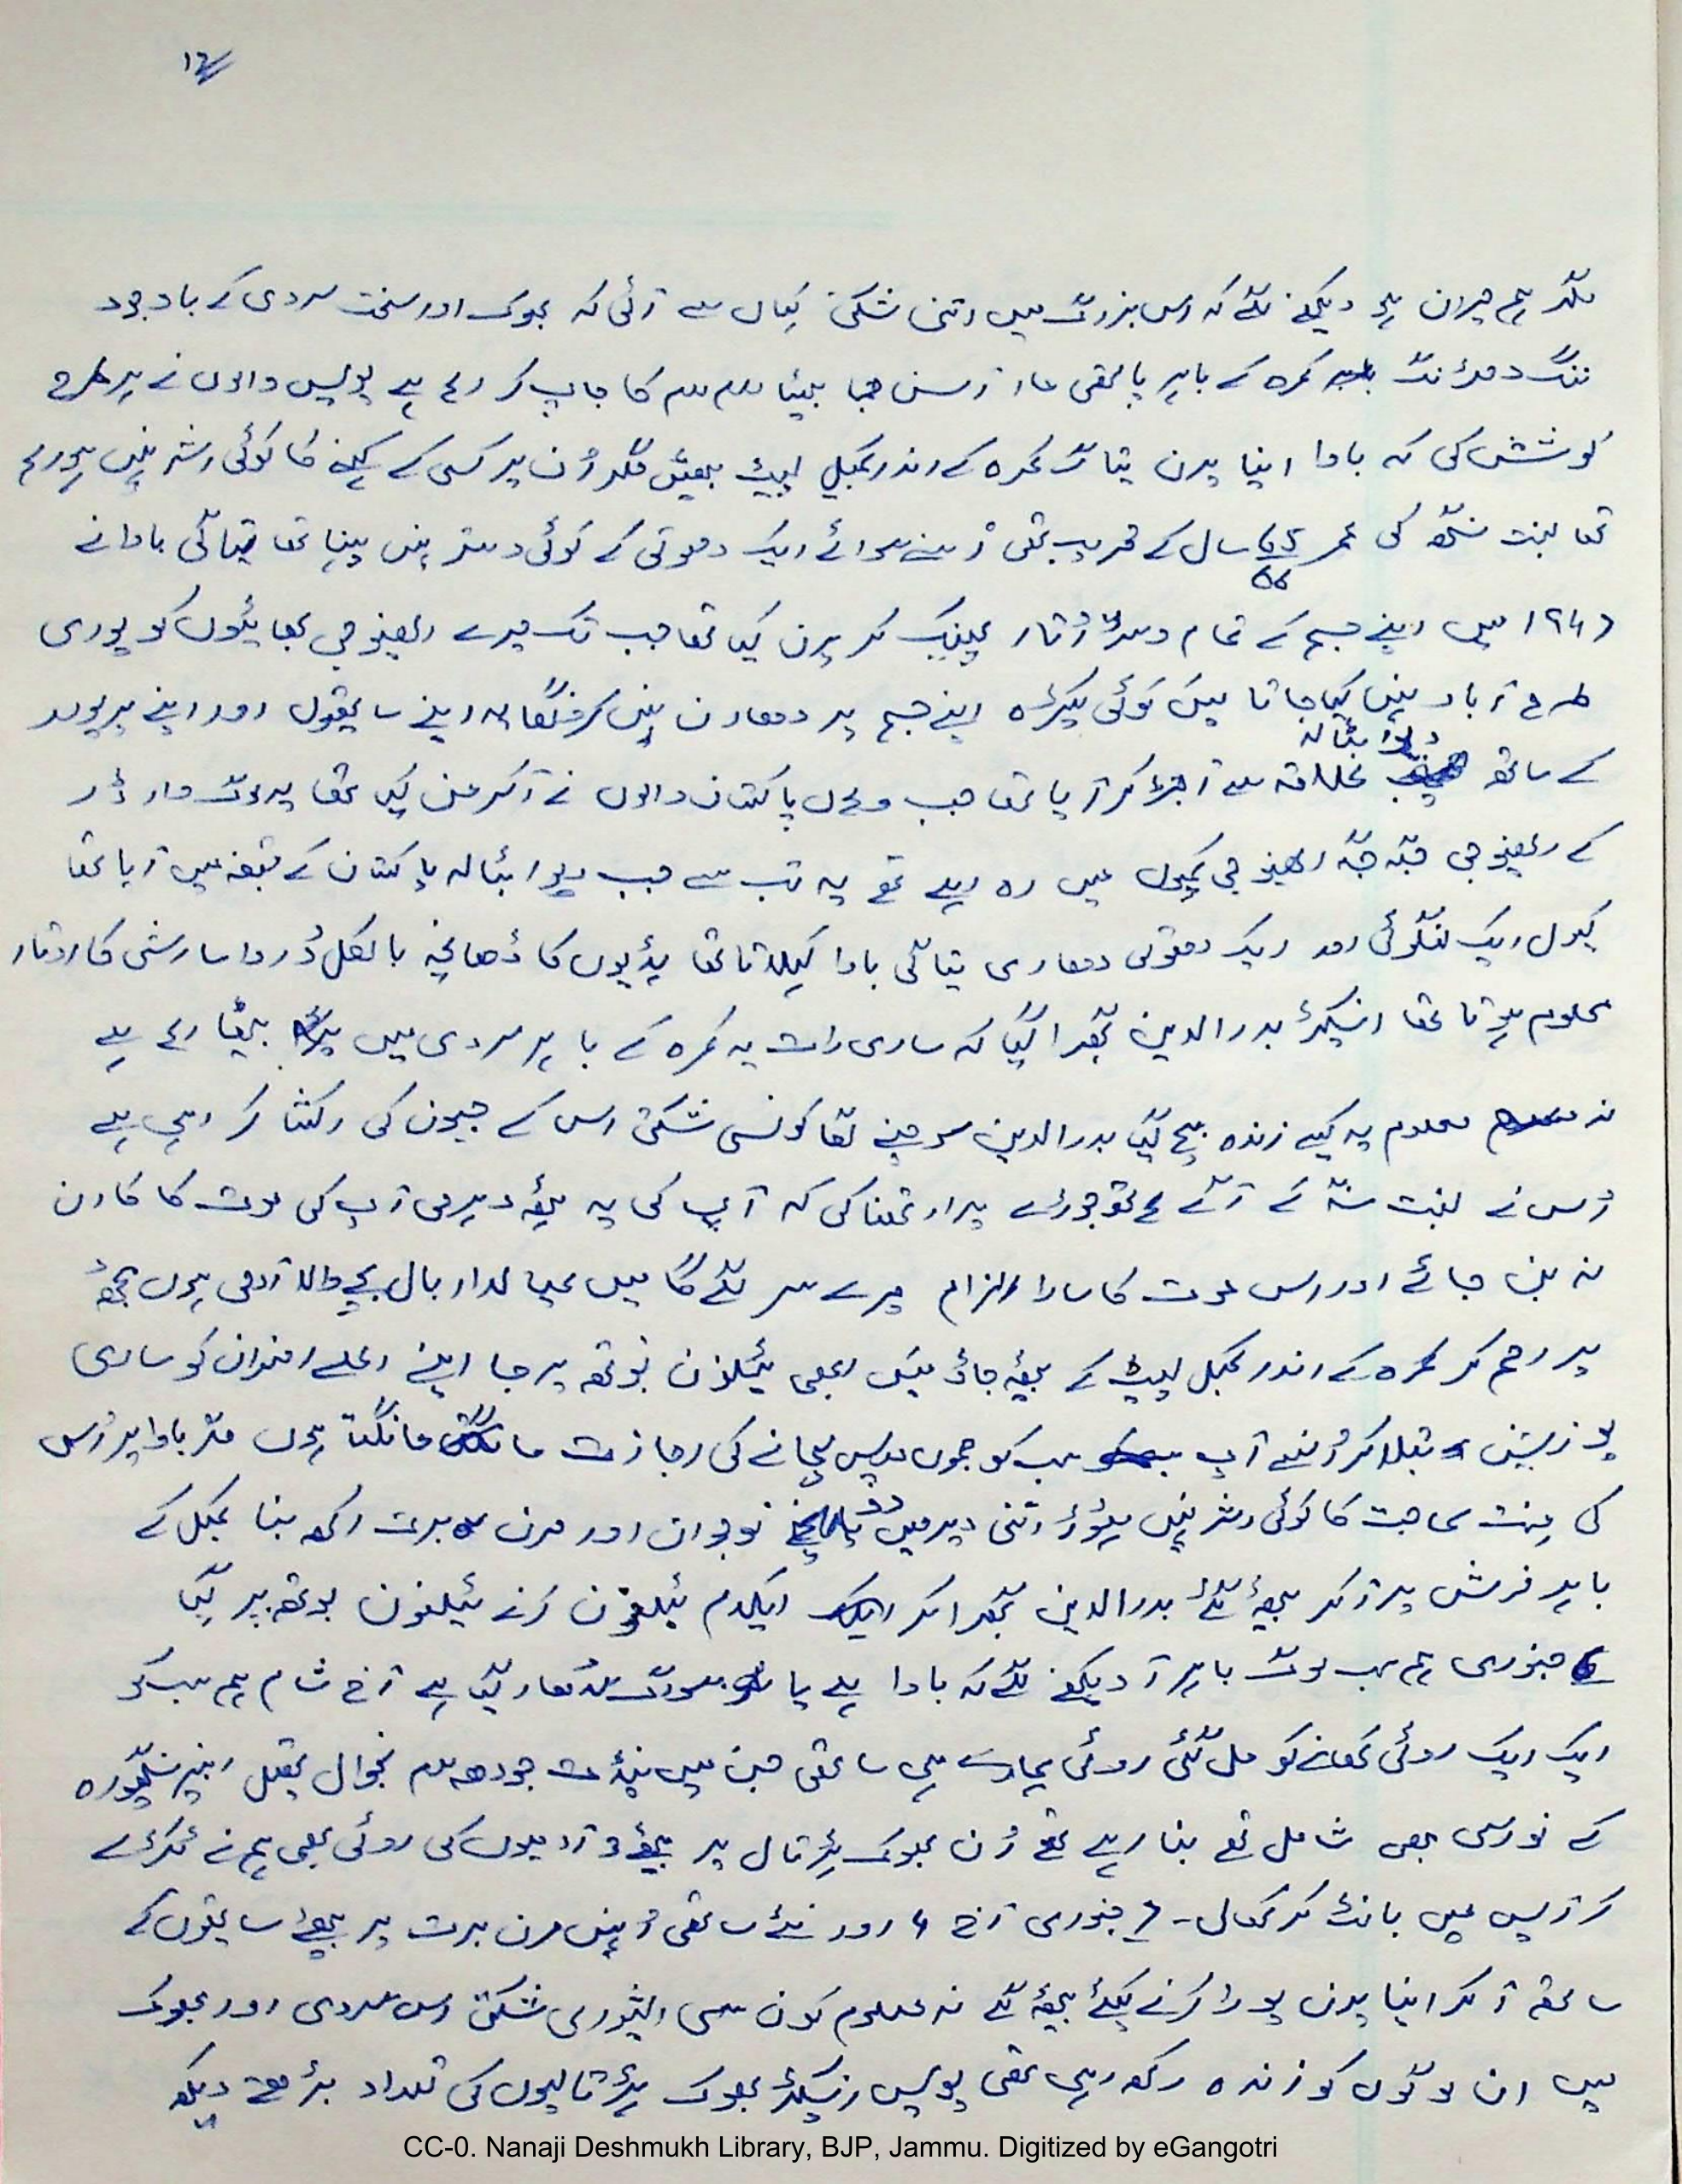 ۱۲
مگر ہم حیران ہو دیکھنے لگے کہ اس بزرگ میں اتنی شکتی کہاں سے آئی کہ بھوک اور سخت سردی کے باوجود
ننگ دھڑنگ کمرہ کے باہر پالتھی مار آسن جما بیٹھا رام رام کا جاپ کر رہا ہے پولیس والوں نے ہر طرح
کوشش کی کہ باوا اپنا پرن تیاگ کمرہ کے اندر کمبل لپیٹ بیٹھیں مگر اُن پر کسی کے کہنے کا کوئی اثر نہیں ہو رہا
تھا سنت سنگھ کی عمر 65 سال کے قریب تھی اُسنے سوائے ایک دھوتی کے کوئی وستر نہیں پہنا تھا تیاگی باوا نے
66
۱۹۴۷ میں اپنے جسم کے تمام وستر اُتار پھینک کر پرن کیا تھا جب تک میرے رفیوجی بھائیوں کو پوری
طرح آباد نہیں کیا جاتا میں کوئی کپڑہ اپنے جسم پر دھارن نہیں کرونگا یہ اپنے ساتھیوں اور اپنے پریوار
دیوا بٹالہ
کے ساتھ علاقہ سے اجڑ کر آیا تھا جب وہاں پاکستان والوں نے آکرمن کیا تھا
کے رفیوجی جگہ جگہ رفیوجی کیمپوں میں رہ رہے تھے یہ تب سے جب دیوا بٹالہ پاکستان کے قبضہ میں آیا تھا
کیول ایک لنگوٹی اور ایک دھوتی دھاری تیاگی باوا کہلاتا تھا ہڈیوں کا ڈھانچہ بالکل دُرواسا رشی کا اوتار
معلوم ہوتا تھا انسپکٹر بدرالدین گھبرا گیا کہ ساری رات یہ کمرہ کے باہر سردی میں بیٹھا رہا ہے
نہ معلوم یہ کیسے زندہ بچ گیا بدرالدین سوچنے لگا کونسی شکتی اس کے جیون کی رکھشا کر رہی ہے
اُس نے سنت سنگھ کے آگے ہاتھ جوڑے پرارتھنا کی کہ آپ کی یہ ہٹھ دھرمی آپ کی موت کا کارن
نہ بن جائے اور اس موت کا سارا الزام میرے سر لگے گا میں عیالدار بال بچے والا آدمی ہوں مجھ
پر رحم کر کمرہ کے اندر کمبل لپیٹ کے بیٹھ جاؤ میں ابھی ٹیلیفون بوتھ پر جا اپنے اعلےٰ افسران کو ساری
پوزیشن بتلا کر اُنسے آپ سب کو جموں واپس لیجانے کی اجازت مانگتا ہوں مگر باوا پر اُس
کی منت سماجت کا کوئی اثر نہیں ہوا اتنی دیر میں دو نوجوان اور مرن برت رکھ بنا کمبل کے
باہر فرش پر آکر بیٹھ گئے بدرالدین گھبرا کر ایکدم ٹیلیفون کرنے ٹیلیفون بوتھ پر گیا
6 جنوری ہم سب لوگ باہر آ دیکھنے لگے کہ باوا ہے یا سورگ سدھار گیا ہے آج شام ہم سب کو
ایک ایک روٹی کھانے کو مل گئی روٹی ہمارے ہی ساتھی جن میں پنڈت جودھ رام تحصیل رنبیر سنگھ پورہ
کے نورسی بھی شامل تھے بنا رہے تھے اُن بھوک ہڑتال پر بیٹھے آدمیوں کی روٹی بھی ہم نے ٹکڑے
کر آپس میں بانٹ کر کھالی۔ 7 جنوری آج 4 اور نئے ساتھی اُنہیں مرن برت پر بیٹھے ساتھیوں کے
ساتھ آ کر اپنا پرن پورا کرنے کیلئے بیٹھ گئے نہ معلوم کون سی ایشوری شکتی اس سردی اور بھوک
میں ان لوگوں کو زندہ رکھ رہی تھی پولیس انسپکٹر بھوک ہڑتالیوں کی تعداد بڑھتے دیکھ
CC-0. Nanaji Deshmukh Library, BJP, Jammu. Digitized by eGangotri